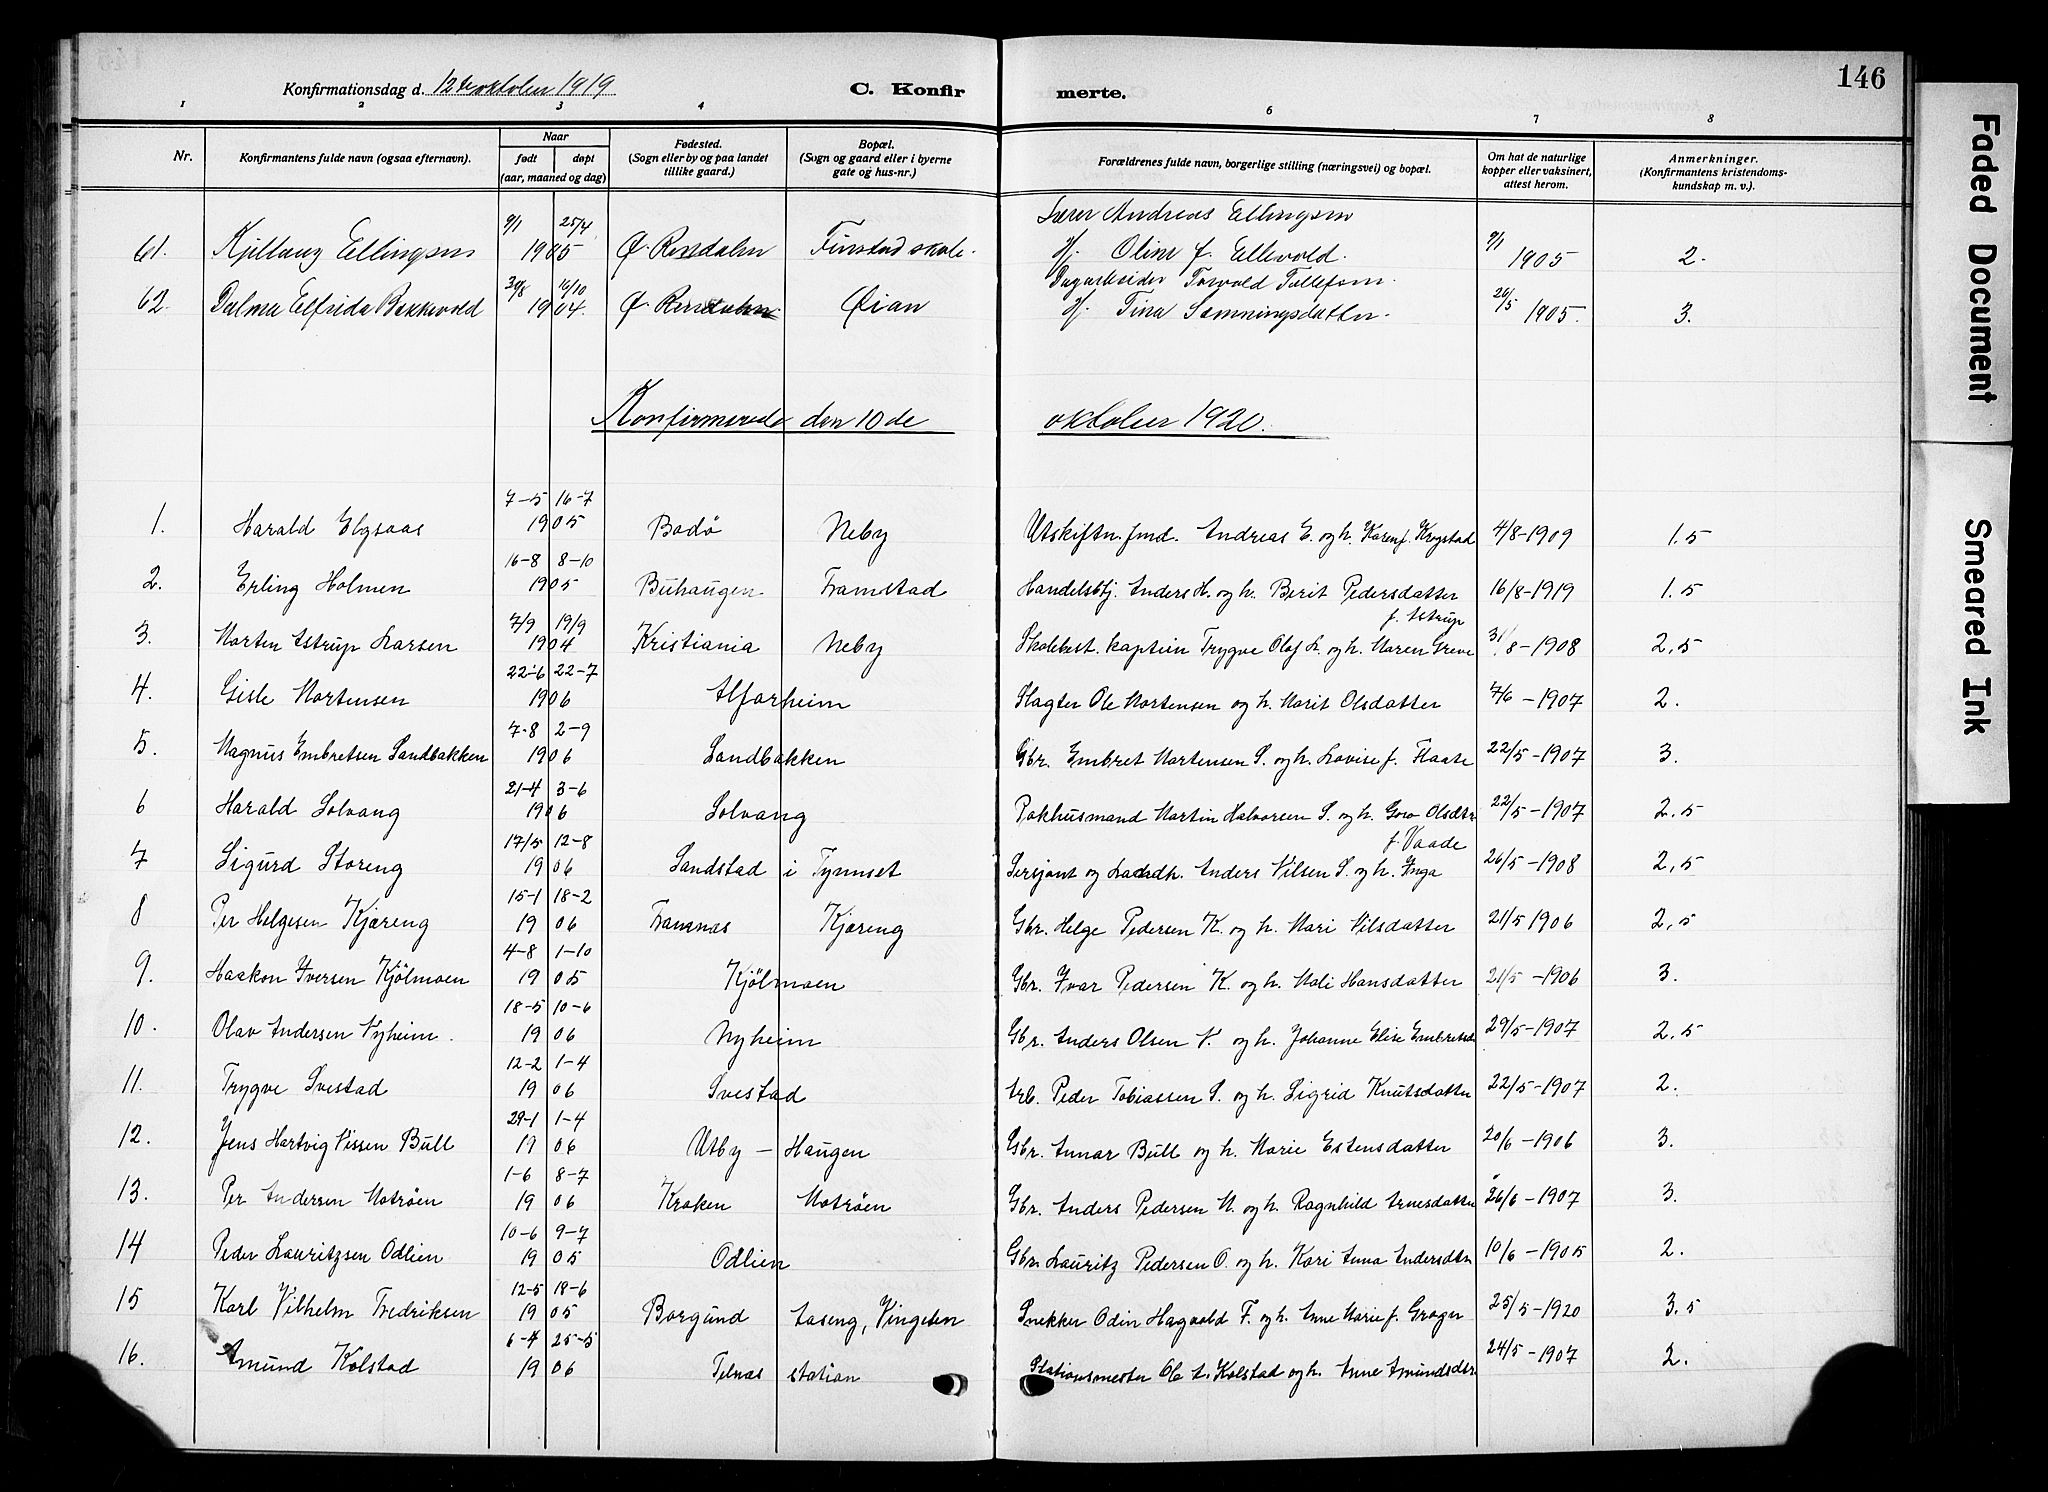 146
Konfirmationsdag d. 12te oktober 1919
C. Konfirmerte.
1 2 3 4 6 7 8
Nr. Konfirmantens fulde navn (ogsaa efternavn). Naar født døpt (aar, maaned og dag) Fødested. (Sogn eller by og paa landet tillike gaard.) Bopæl. (Sogn og gaard eller i byerne gate og hus-nr.) Forældrenes fulde navn, borgerlige stilling (næringsvei) og bopæl. Om hat de naturlige kopper eller vaksinert, attest herom. Anmerkninger. (Konfirmantens kristendomskundskap m. v.).
61. Kjellaug Ellingsen 9/1 25/4 1905 Ø. Rendalen Finstad skole. Lærer Andreas Ellingsen H. Oline f. Ellevold. 9/1 1905 2.
62. Dalma Elfrida Bakkevold 30/8 16/10 1904. Ø. Rendalen Øian Dagarbeider Torvald Tollefsen. H. Tina Semmingsdatter. 26/5 1905. 3.
Konfirmerede den 10de oktober 1920.
1. Harald Elgsaas 7-5 16-7 1905 Bodø Neby Utskiftn.fmd. Andreas E. og h. Karen f. Krogstad 4/8-1909 1.5
2. Erling Holmen 16-8 8-10 1905 Buhaugen Framstad Handelsbtj. Anders H. og h. Berit Pedersdatter 16/8-1919 1.5
3. Morten Astrup Larsen 7/9 19/9 1904 Kristiania Neby Skolebest. kaptein Trygve Olaf L. og h. Maren Greve f. Astrup 31/8-1908 2,5
4. Gisle Mortensen 22-6 22-7 1906 Alfarheim Slagter Ole Mortensen og h. Marit Olsdatter 7/6-1907 2.
5. Magnus Embretsen Sandbakken 7-8 2-9 1906 Sandbakken Gbr. Embret Mortensen S. og h. Lovise f. Flaate 22/5-1907 3.
6 Harald Solvang 21-4 3-6 1906 Solvang Pakhusmand Martin Halvorsen S. og h. Goro Olsdtr 22/5-1907 2.5
7 Sigurd Storeng 17/5 12-8 1906 Sandstad i Tynnset Sersjant og Landh. Anders Nilsen S. og h. Inga f. Vaade 26/5-1908 2,5
8 Per Helgesen Kjæreng 15-1 18-2 1906 Fransnas Kjæreng Gbr. Helge Pedersen K. og h. Mari Nilsdatter 21/5 1906 2,5
9. Haakon Iversen Kjölmoen 4-8 1-10 1905 Kjölmoen Gbr. Ivar Pedersen K. og h. Mali Hansdatter 21/5-1906 3.
10. Olav Andersen Nyheim. 18-5 10-6 1906 Nyheim Gbr. Anders Olsen N. og h. Johanne Elise Embretsd. 29/5-1907 2.5
11. Trygve Svestad 12-2 1-4 1906 Svestad Arb. Peder Tobiassen S. og h. Sigrid Knutsdatter 22/5-1907 2.
12. Jens Hartvig Nissen Bull 29-1 1-4 1906 Utby - Haugen Gbr. Annar Bull og h. Marie Estensdatter 20/6-1906 3.
13. Per Andersen Motrøen 1-6 8-7 1906 Kroken Motrøen Gbr. Anders Pedersen M. og h. Ragnhild Arnesdatter 26/6-1907 3.
14 Peder Lauritzsen Odlien 10-6 9-7 1905 Odlien Gbr. Lauritz Pedersen O. og h. Kari Anna Andersdtr 10/6-1905 2.
15 Karl Vilhelm Fredriksen 12-5 18-6 1905 Borgund Aaseng, Vingelen Snekker Odin Hagvald F. og h. Anne Marie f. Groger 25/5-1920 3.5
16. Amund Kolstad 6-4 25-5 1906 Telnes station Stationsmester Ole A. Kolstad og h. Anne Amundsdtr. 24/5-1907 2.
Faded Document
Smeared Ink